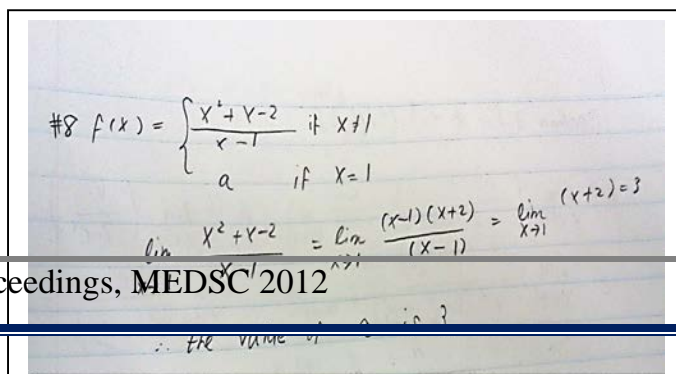 #8 f(x) = { x² + x - 2 / x - 1 if x ≠ 1
a if x = 1
lim x² + x - 2 / x - 1 = lim x→1 (x-1)(x+2) / (x-1) = lim x→1 (x+2) = 3
ceedings, MEDSC 2012
∴ the value of a is 3